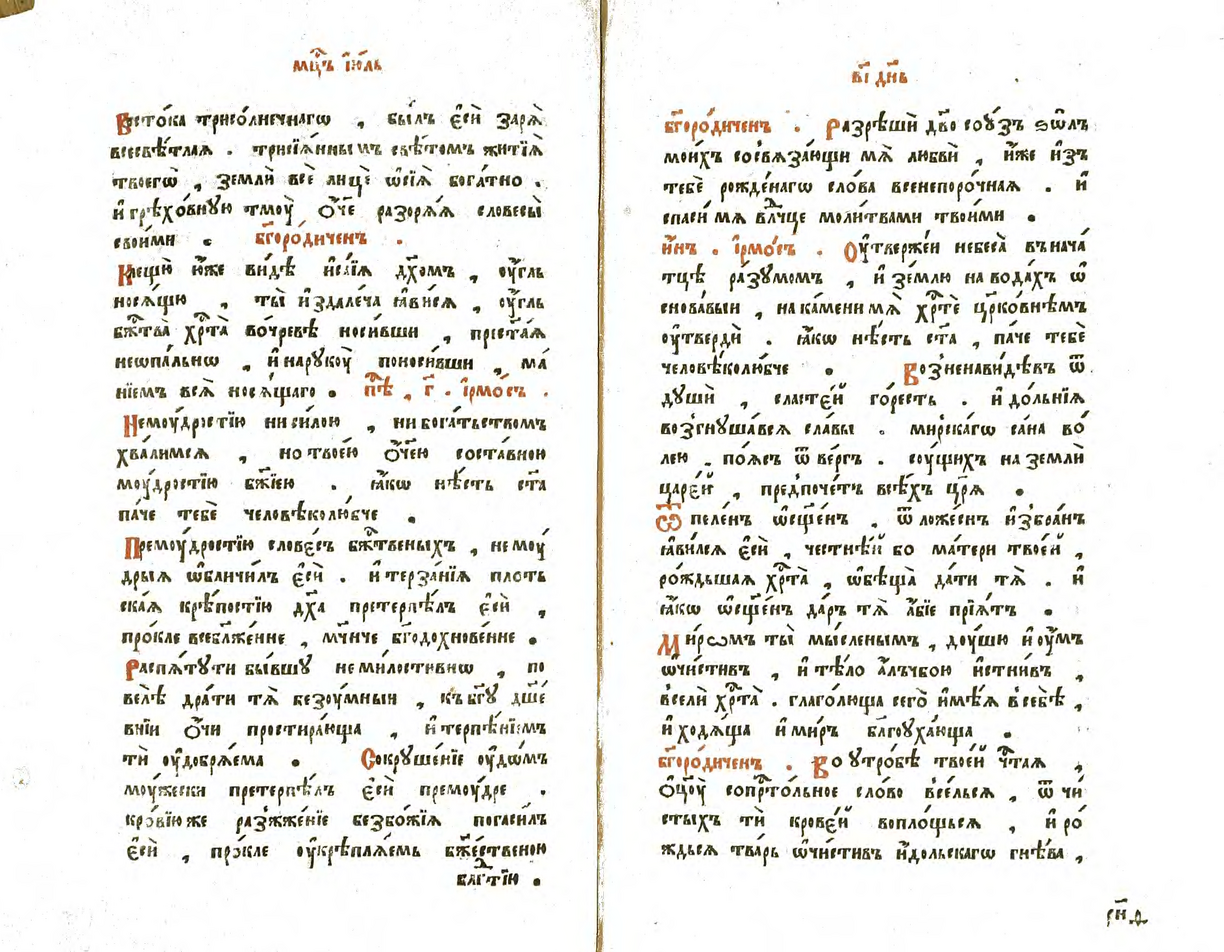 мц҃ъ і҆ю́ль
Востѡ́ка трисо́лнечнагѡ , бы́лъ є҆сѝ зарѧ̀
всесвѣ́тлаѧ . трисїѧ́ннымъ свѣ́томъ житїѧ̀
твоегѡ̀ , землѝ всѐ лицѐ ѡ҆сїѧ̀ бога́тно .
и҆ грѣхо́вную тмоу̀ ѻ҆́ч҃е разорѧ́ѧ словесы̀
свои́ми . бг҃оро́диченъ .
Клещю̀ ю҆́же ви́дѣ и҆са́їѧ дх҃омъ , оу҆́гль
носѧ́щю , ты̀ и҆здале́ча ꙗ҆ви́сѧ , оу҆́гль
бж҃тва̀ хр҃та̀ во́чревѣ носи́вши , прес҃та́ѧ
неѡпа́льнѡ , и҆ нарукоу̀ поноси́вши , ма́
нїемъ всѧ̀ носѧ́щаго . пѣ҃ , г҃ . і҆рмо́съ .
Немоу́дростїю ни си́лою , ни бога́тьствомъ
хва́лимсѧ , но твое́ю ѻ҆́ч҃ею соста́вною
моу́дростїю бж҃їею . ꙗ҆́кѡ нѣ́сть ст҃а
па́че тебѐ человѣколю́бче .
Премоу́дростїю слове́съ бж҃твеныхъ , немоу́
дрыѧ ѡ҆бличи́лъ є҆сѝ . и҆ терза́нїѧ пло́ть
скаѧ крѣ́постїю дх҃а претерпѣ́лъ є҆сѝ ,
про́кле всебл҃же́нне , мч҃нче бг҃одохнове́нне .
Распѧ́ту ти бы́вшу неми́лостивнѡ , по
велѣ̀ дра́ти тѧ̀ безоу́мныи , къ бг҃у дш҃е́
внїи ѻ҆́чи простира́юща , и҆ терпѣ́нїемъ
тѝ оу҆добрѧ́ема . Сокруше́нїе оу҆дѡ́мъ
моу́жески претерпѣ́лъ є҆сѝ премоу́дре .
кро́вїю же разжже́нїе безбо́жїѧ погаси́лъ
є҆сѝ , про́кле оу҆крѣплѧ́емь бж҃е́ственою
бл҃гтїю .
в҃і дн҃ь
бг҃оро́диченъ . Разрѣшѝ дв҃о сою́зъ ѕѡ́лъ
мои́хъ сосвѧза́ющи мѧ̀ любвѝ , и҆́же и҆зъ
тебѐ рожде́нагѡ сло́ва всенепоро́чнаѧ . и҆
спаси́ мѧ вл҃чце моли́твами твои́ми .
и҆́нъ . і҆рмо́съ . Оу҆твержеи́ небеса̀ въ нача́
тцѣ ра́зумомъ , и҆ зе́млю на вода́хъ ѡ҆
снова́выи , на ка́мени мѧ̀ хр҃тѐ цр҃ко́внѣмъ
оу҆твердѝ . ꙗ҆́кѡ нѣ́сть ст҃а , па́че тебѐ
человѣколю́бче . Возненави́дѣвъ ѿ
душѝ , сласте́й го́ресть . и҆ до́льнїѧ
возгнуша́всѧ сла́вы . мирска́гѡ са́на во́
лею , по́ѧсъ ѿве́ргъ . соу́щихъ на землѝ
царе́й , предпоче́тъ всѣ́хъ цр҃ѧ .
Ѿ пеле́нъ ѡ҆сщ҃е́нъ , ѿ ложе́снъ и҆збра́нъ
ꙗ҆ви́лсѧ є҆сѝ , честнѣ́й бо ма́тери твое́й ,
ро́ждьшаѧ хр҃та̀ , ѡ҆бѣща̀ да́ти тѧ̀ . и҆
ꙗ҆́кѡ ѡ҆сщ҃е́нъ да́ръ тѧ̀ а҆́бїе прїѧ́тъ .
Ми́рѡмъ ты̀ мы́сленымъ , до́ушю и҆ оу҆́мъ
ѡ҆чи́стивъ , и҆ тѣ́ло а҆́лъчбою и҆стни́въ ,
вселѝ хр҃та̀ . глаго́люща сего̀ и҆мѣ́ѧ в себѣ̀ ,
и҆ ходѧ́ща и҆ ми́ръ бл҃гоуха́юща .
бг҃оро́диченъ . Во утро́бѣ твое́й чт҃аѧ ,
ѻ҆ц҃оу̀ сопр҃то́льное сло́во всѐльсѧ , ѿ чи́
стыхъ тѝ крове́й воплощьсѧ , и҆ ро́
ждьсѧ тва́рь ѡ҆чи́стивъ и҆́дольскагѡ гнѣ́ва ,
рн҃д